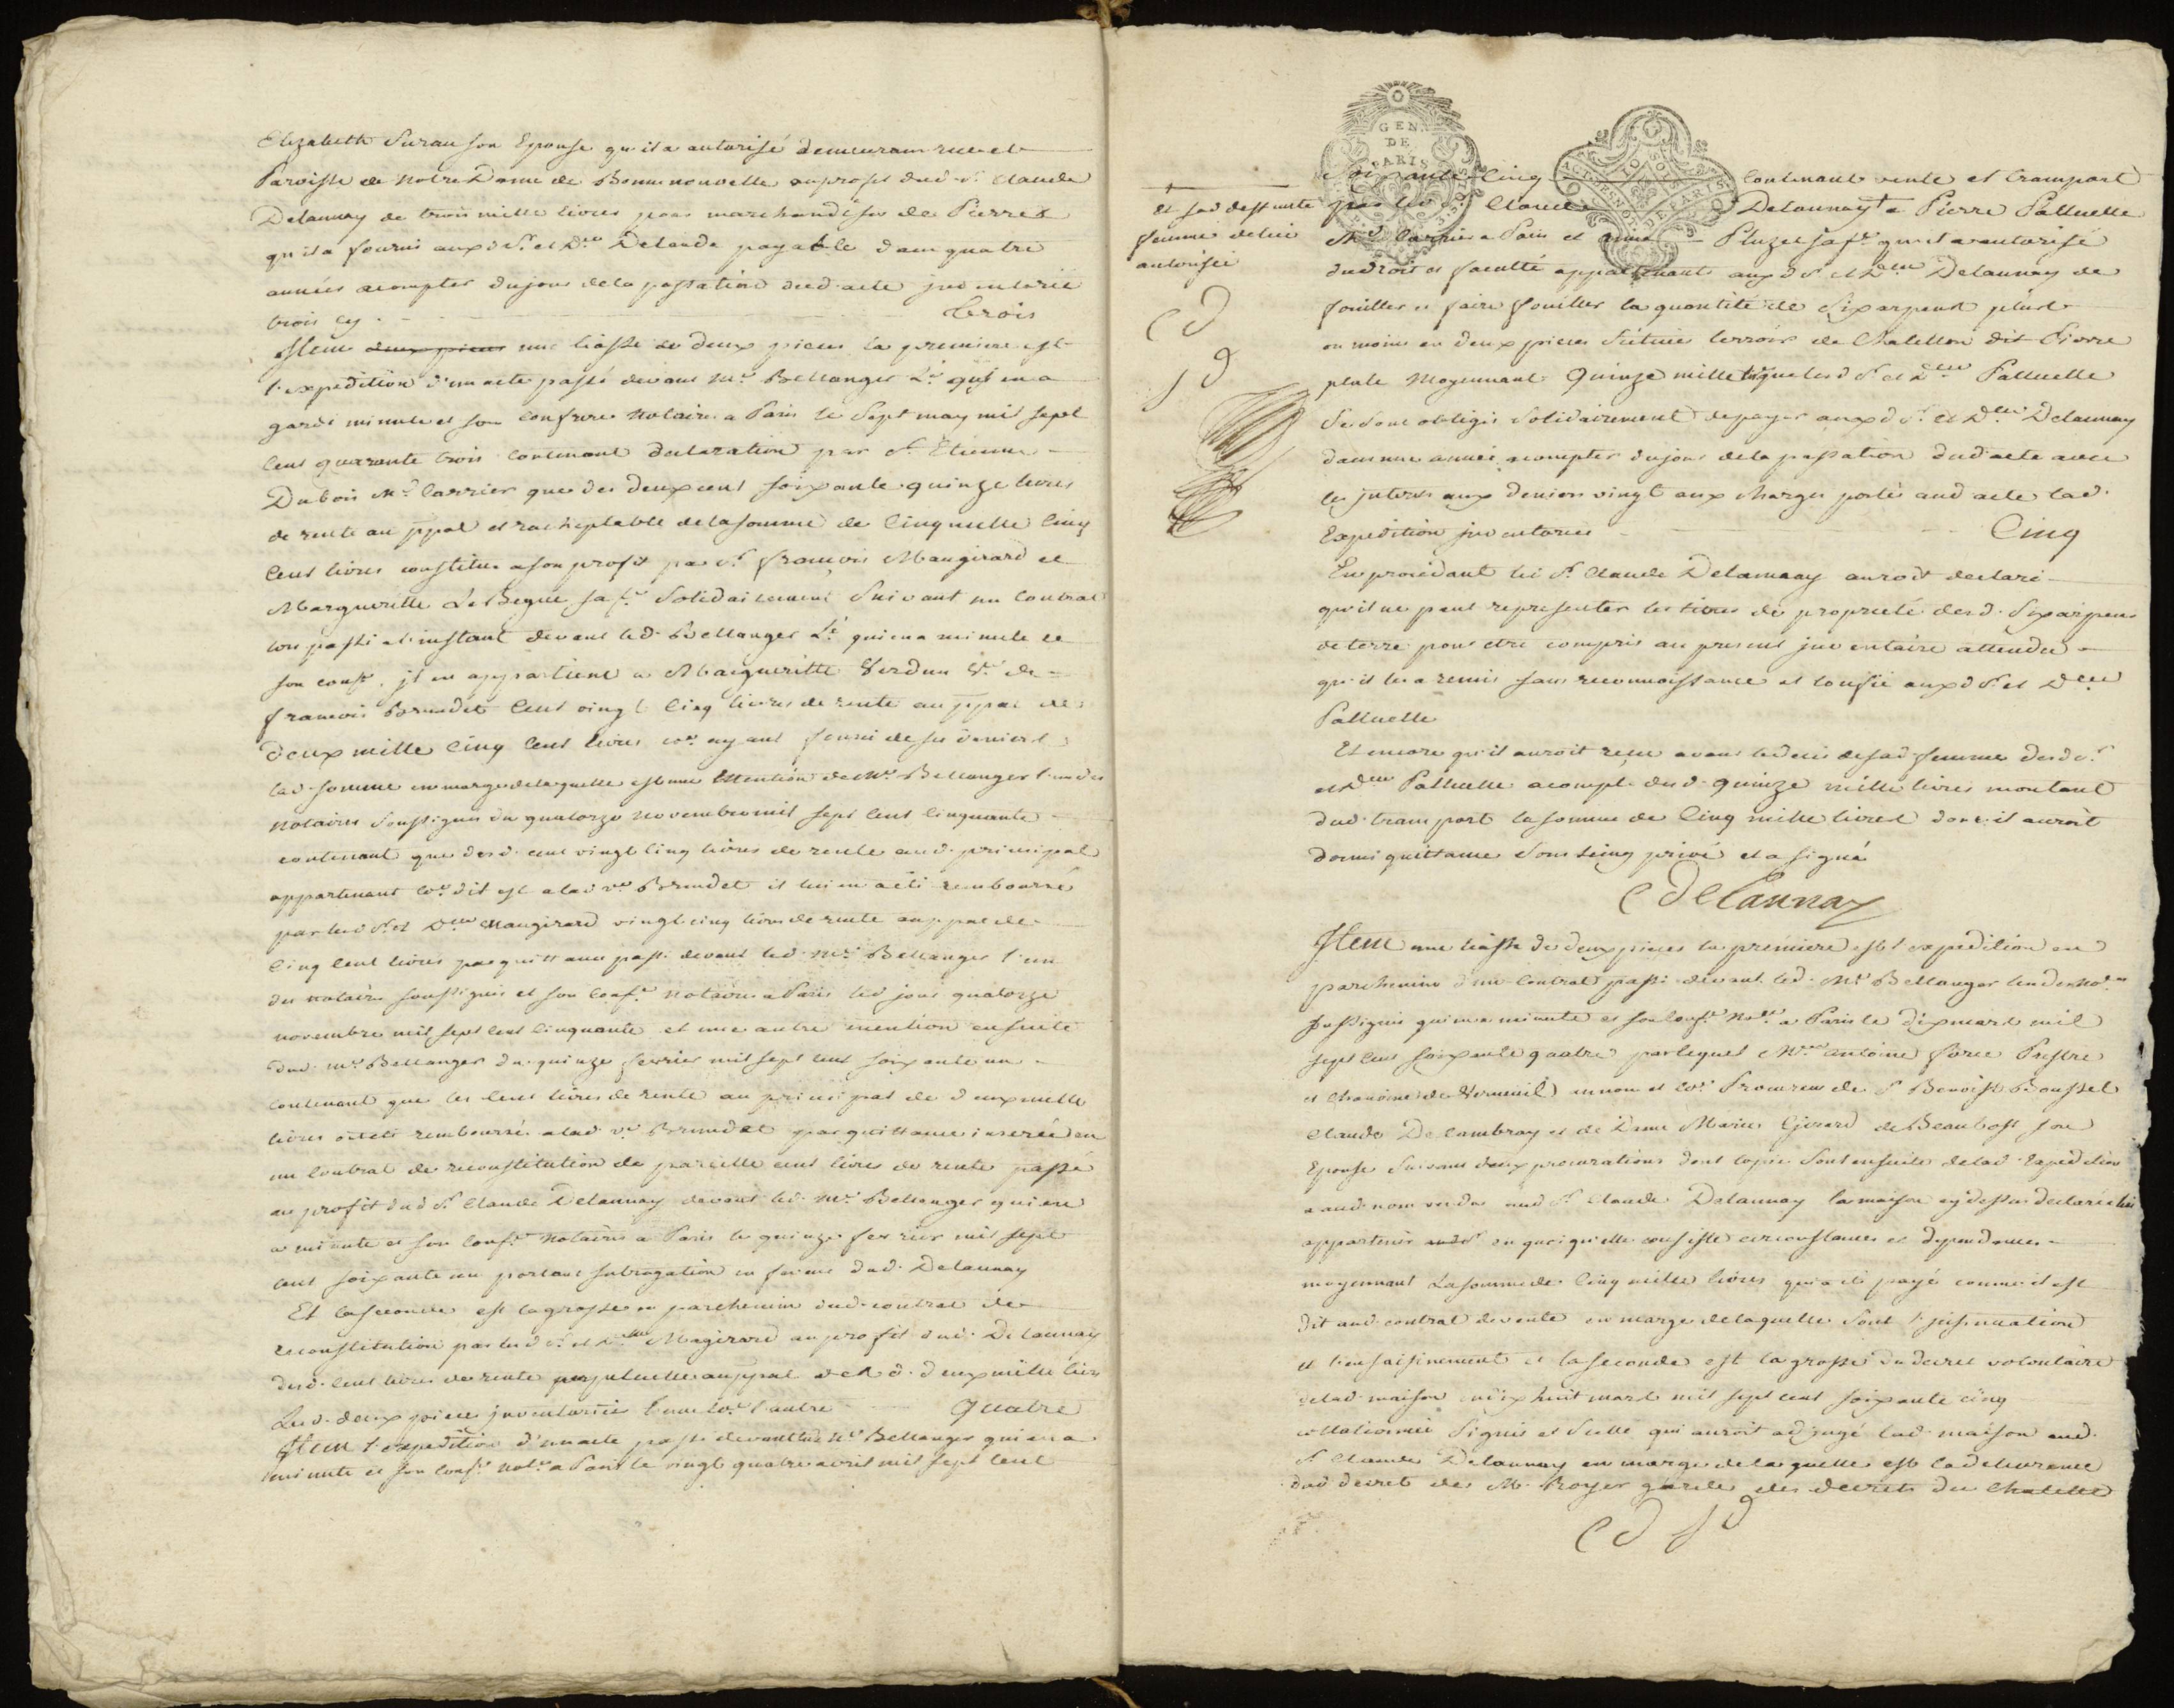 Elizabeth Suran son Epouse qu'il a autorisé demeurans rue et
Paroisse de Notre Dame de Bonne nouvelle au profit dud. Sr. Claude
Delaunay de trois mille livres pour marchandises de Pierres
qu'il a fourni auxd. Sr. et Dlle Delande payable dans quatre
années acompter du jour de la passation dud. acte inventorié
trois cy. Trois
Item une liasse de deux pieces la premiere est
l'expedition d'un acte passé devant Me. Bellanger Lé. qui en a
gardé minute et son confrere Notaires a Paris le Sept may mil sept
cent quarante trois contenant declaration par Sr. Etienne
Dubois Md. Carrier que des deux cens soixante quinze livres
de rente au ppal et racheptable de la somme de Cinq mille Cinq
Cens livres constitué a son profit par Sr. francois Maugirard et
Margueritte Le Begue sa fe. Solidairement Suivant un Contrat
passé a l'instant devant led. Bellanger Lé. qui en a minute et
son confr. il en appartient a Margueritte Verdun Ve. de
francois Brundet Cent vingt Cinq livres de rente au ppal de
deux mille Cinq Cent livres ayant fourni de ses deniers
lad. somme en marge de laquelle est une Mention de Me. Bellanger l'un des
notaires soussignés du quatorze novembre mil sept Cent Cinquante
contenant que desd. cent vingt Cinq livres de rente aud. principal
appartenant co. dit est a lad. ve. Brundet il lui en a eté remboursé
par lesd. Sr. et Dlle Maugirard vingt cinq livres de rente au ppal de
Cinq Cent livres par quittance passé devant led. Me. Bellanger l'un
des notaires soussignés et son Confr. notaires a Paris led. jour quatorze
novembre mil sept Cent Cinquante et une autre mention ensuite
dud. Me. Bellanger du quinze fevrier mil sept Cent soixante un
contenant que les Cent livres de rente au principal de deux mille
livres ont eté remboursé a lad. ve. Brundet par quittance inserée en
un Contrat de reconstitution de pareille cent livres de rente passé
au profit dud. Sr. Claude Delaunay devant led. Me. Bellanger qui en
a minute et son Confr. Notaires a Paris le quinze fevrier mil sept
cent soixante un portant subrogation en faveur dud. Delaunay
Et la seconde est la grosse en parchemin dud. contrat de
reconstitution par lesd. Sr. et Dlle Magirard au profit dud. Delaunay
desd. Cent livres de rente perpetuelle au ppal desd. deux mille livres
Lesd. deux pieces inventoriées l'une co. l'autre Quatre
Item l'expedition d'un acte passé devant led. Me. Bellanger qui en a
minute et son Confr. Notr. a Paris le vingt quatre avril mil sept Cent
GEN. DE PARIS
ACT. DES NOT. DE PARIS
Soixante Cinq Contenant vente et transport
par led. Sr. Claude Delaunay + a Pierre Palluelle
Md. Carrier a Paris et Pluzet sa fe. qu'il a autorisé
du droit et faculté appartenants auxd. Sr. et Dlle Delaunay de
fouiller et faire fouiller la quantité de Six arpens plus
ou moins en deux pieces Scituées terroir de Chatillon dit Pierre
plate Moyennant Quinze mille que lesd. Sr. et Dlle Palluelle
Se sont obligés Solidairement de payer auxd. Sr. et Dlle Delaunay
dans une année acompter du jour de la passation dud. acte avec
les interets aux deniers vingt aux charges portés aud. acte lad.
Expedition inventoriée Cinq
+ et lad. deffunte
femme de lui
autorisée
c d
j d
En procedant led. Sr. Claude Delaunay auroit declaré
qu'il ne peut representer les titres de proprieté desd. Six arpens
de terre pour etre compris au present inventaire attendu
qu'il les a remis sans reconnoissance et confié auxd. Sr. et Dlle
Palluelle
Et encore qu'il auroit reçu avant le deces de sad. femme desd. Sr.
et Dlle Palluelle acompte desd. quinze mille livres montant
dud. transport la somme de Cinq mille livres dont il auroit
donné quittance sous seing privé et a signé
C Delaunay
Item une liasse de deux pieces la premiere est l'expedition en
parchemin d'un Contrat passé devant led. Me. Bellanger l'un des Notres
soussignés qui en a minute et son Confr. Notre. a Paris le dix mars mil
sept Cent soixante quatre par lequel Mre. Antoine forie Prestre
et Chanoine de Verneuil au nom et co. Procureur de Sr. Benoist Boussel
Claude De Cambray et de Dame Marie Gerard de Beaubost son
Epouse Suivant deux procurations dont copie sont ensuite de lad. Expedition
aud. nom vendu aud. Sr. Claude Delaunay la maison cy dessus declarée lui
appartenir en quoi qu'elle consiste circonstances et dependances
moyennant La somme de Cinq mille livres qui a eté payé comme il est
dit aud. contrat de vente en marge de laquelle sont l'insinuation
et l'ensaisinement et la seconde est la grosse du decret volontaire
de lad. maison du dix huit mars mil sept cent soixante cinq
collationnée signée et Scellé qui auroit adjugé lad. maison aud.
Sr. Claude Delaunay en marge de laquelle est la delivrance
dud. decret de M. Royer garde des decrets du Chatelet
c d j d